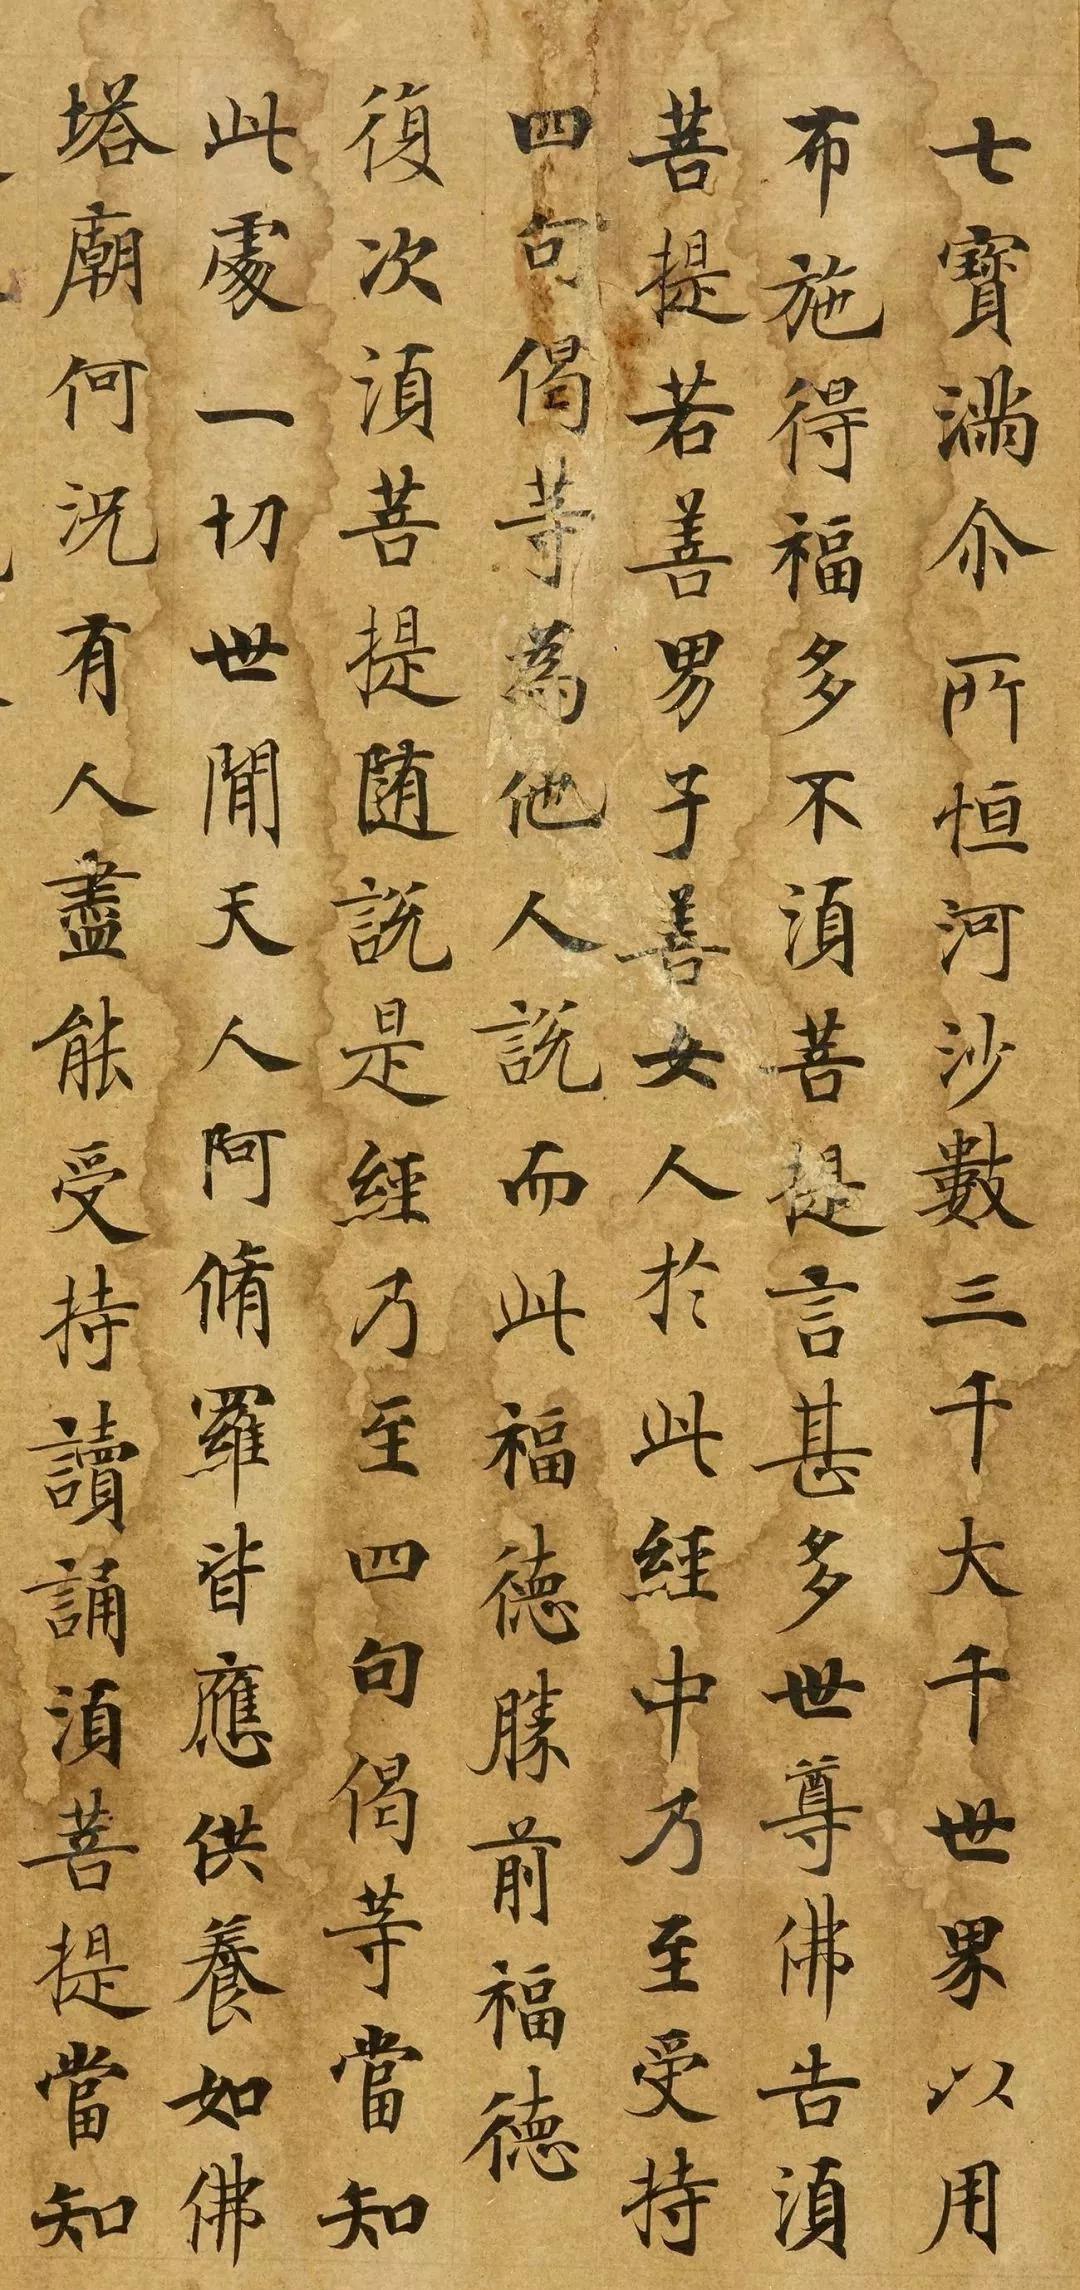 七寶滿尒所恒河沙數三千大千世界以用
布施得福多不湏菩提言甚多世尊佛告湏
菩提若善男子善女人於此經中乃至受持
四句偈等為他人說而此福德勝前福德
復次湏菩提随說是經乃至四句偈等當知
此處一切世間天人阿脩羅皆應供養如佛
塔廟何况有人盡能受持讀誦湏菩提當知